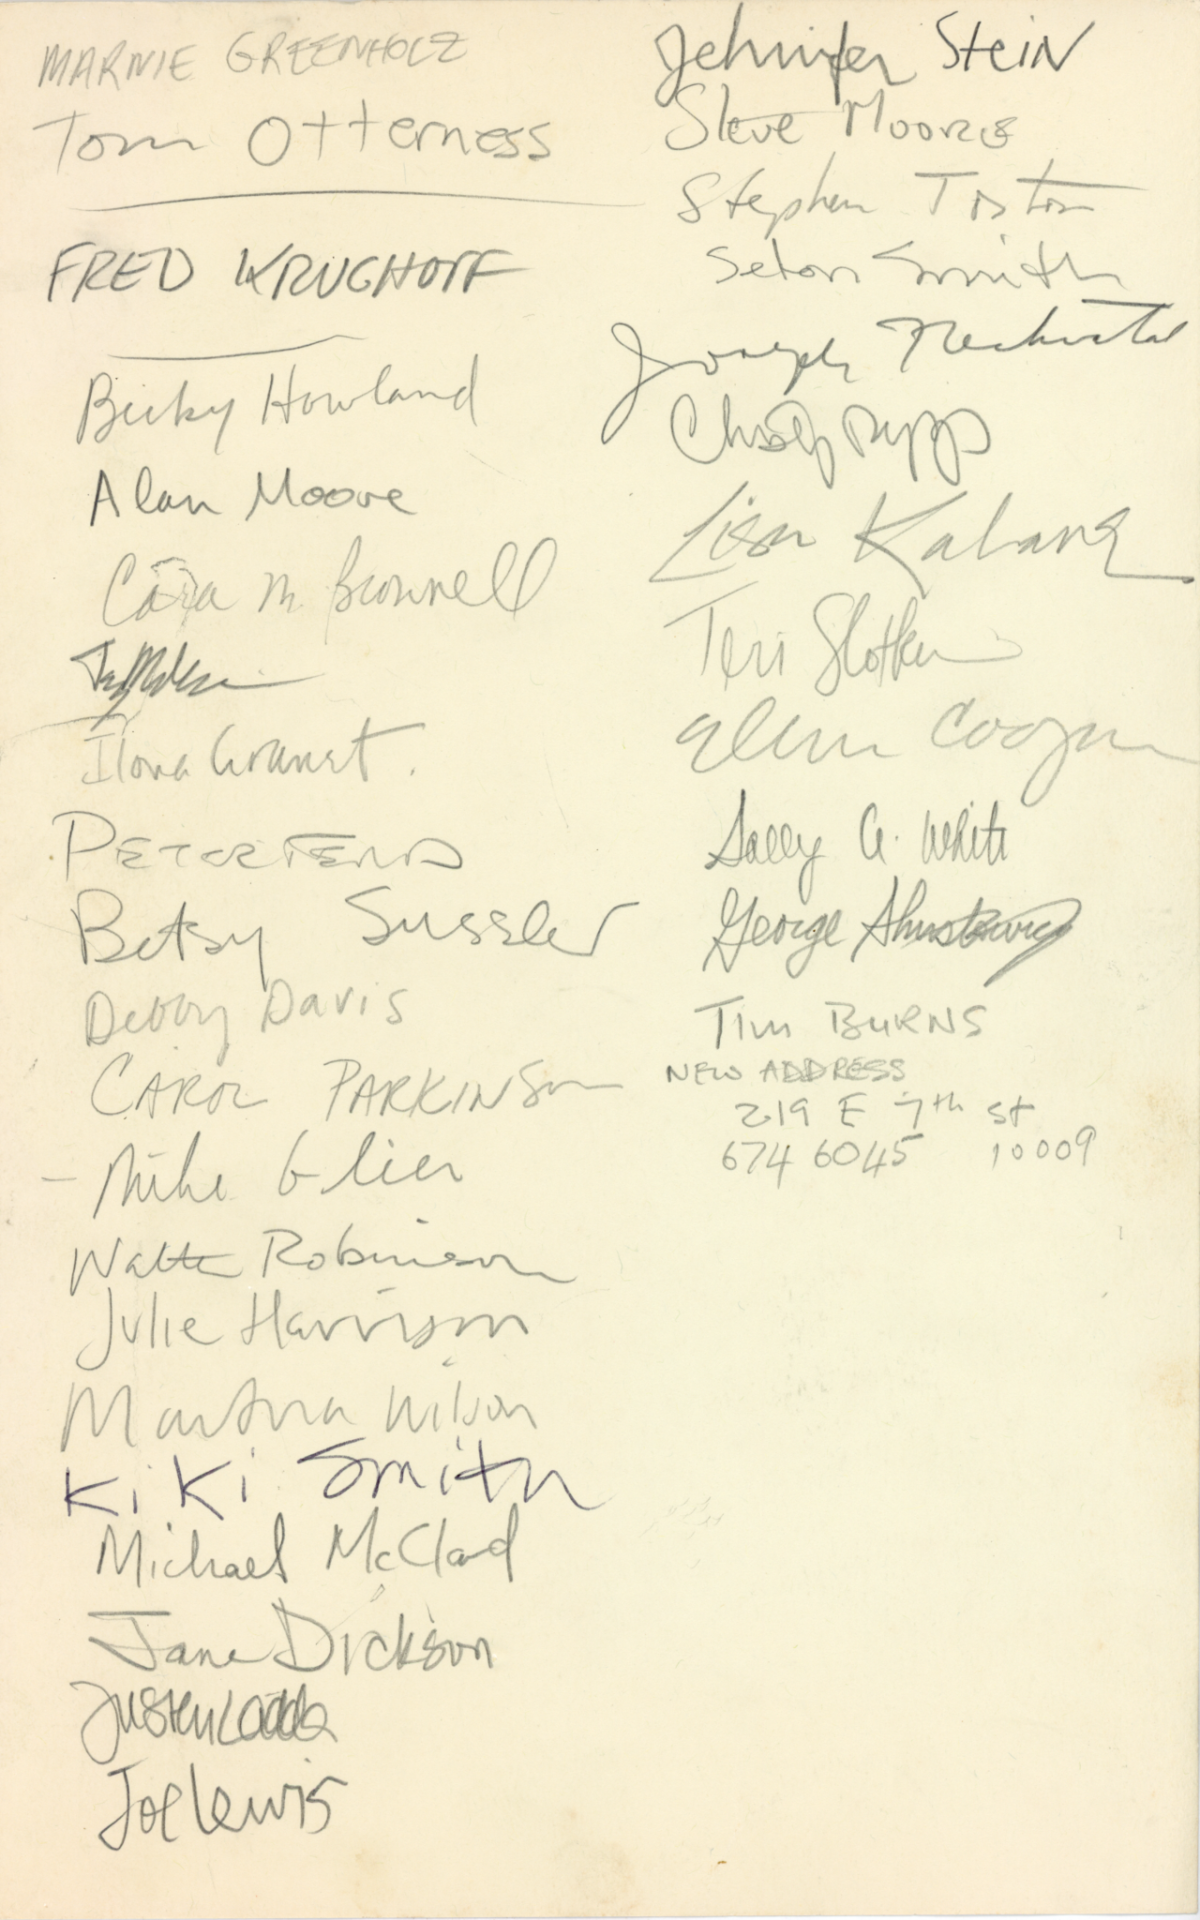 MARNIE GREENHOLZ
Tom Otterness
FRED KRUGHOFF
Becky Howland
Alan Moore
Cara M Brownell
Ilona Granet.
PETER FEND
Betsy Sussler
Debby Davis
CAROL PARKINSON
- Mike Glier
Walter Robinson
Julie Harrison
Martha Wilson
KiKi Smith
Michael McClard
Jane Dickson
Justen Ladda
Joe Lewis
Jennifer Stein
Steve Moore
Stephen
Seton Smith
Joseph Nechvatal
Christy Rupp
Lisa Kahane
Teri Slotkin
Coogan
Sally A. White
George
TIM BURNS
NEW ADDRESS
219 E 7th St
674 6045 10009